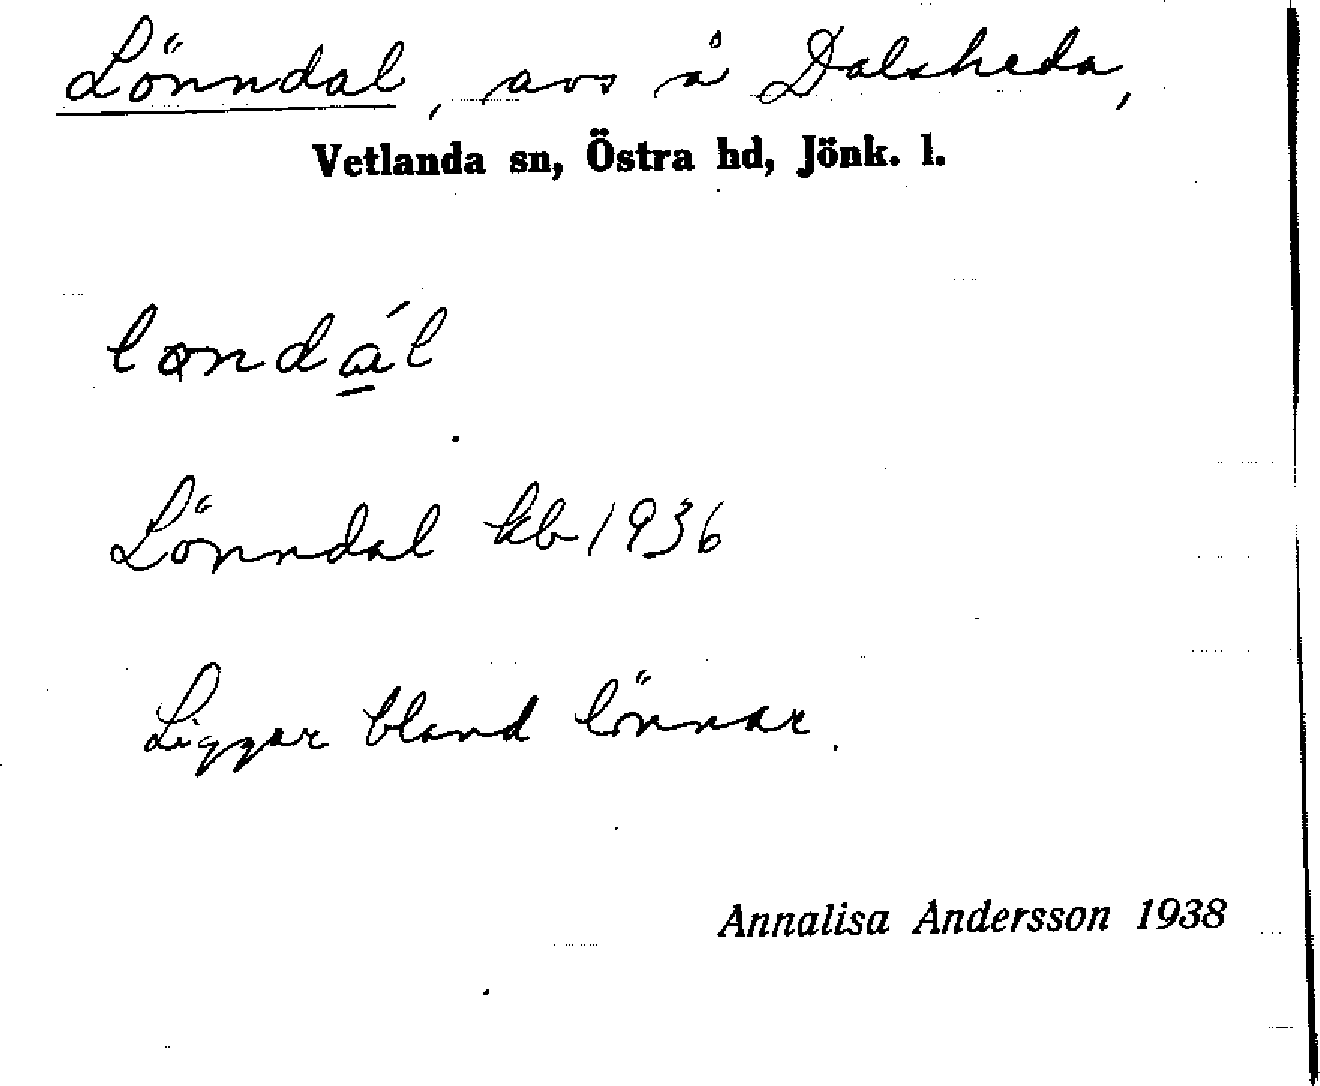 Lönndal, avs å Dalsheda,
Vetlanda sn, Östra hd, Jönk. l.
løndá̱l
Lönndal kb 1936
Ligger bland lönnar.
Annalisa Andersson 1938